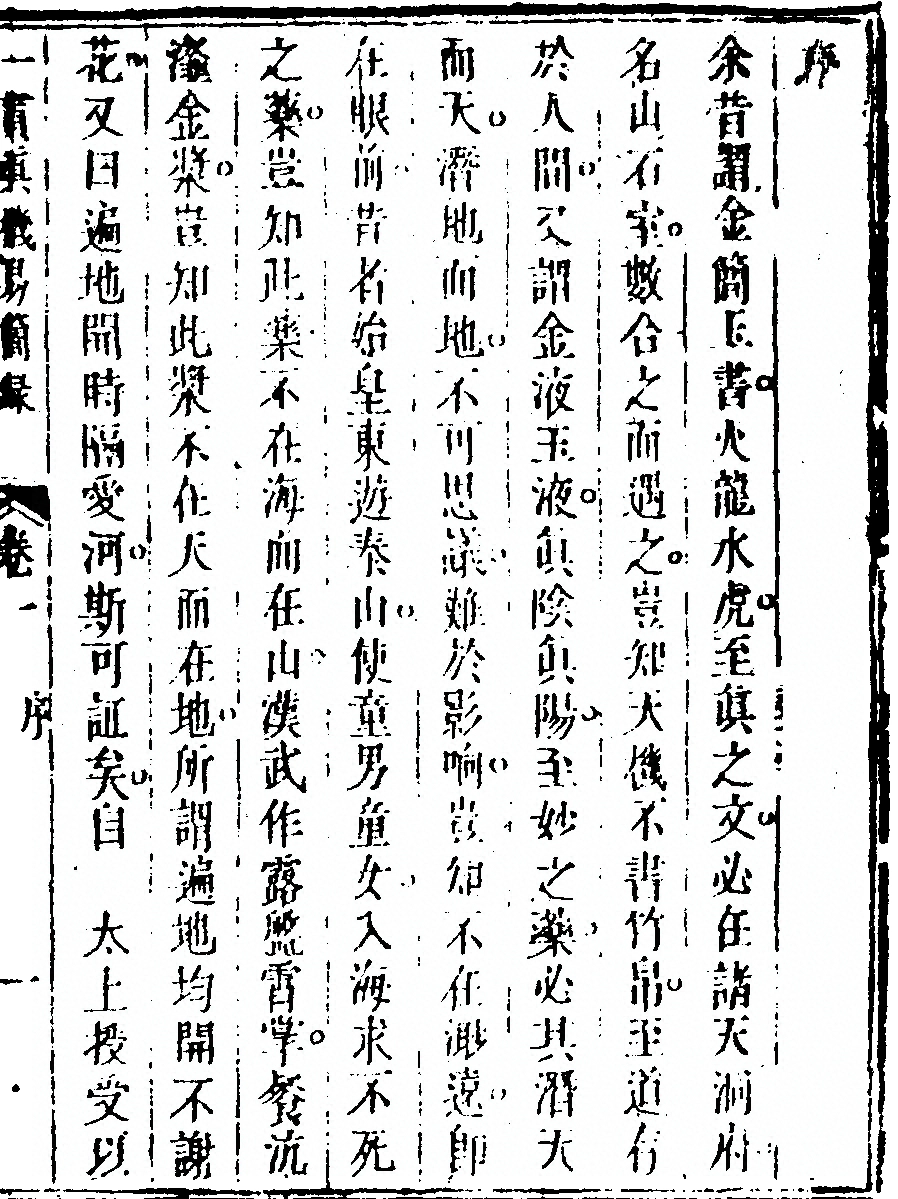 序
余昔謂金簡玉書火龍水虎至眞之文必在諸天洞府
名山石室數合之而遇之豈知天機不書竹帛至道行
於人間又謂金液玉液眞陰眞陽至妙之藥必其潛天
而天潛地而地不可思議難於影响豈知不在渺遠卽
在眼前昔者始皇東遊泰山使童男童女入海求不死
之藥豈知此藥不在海而在山漢武作露盤霄掌餐沆
瀣金漿豈知此漿不在天而在地所謂遍地均開不謝
花又曰遍地開時隔愛河斯可証矣自 太上授受以
一貫眞機易簡錄 卷一 序 一